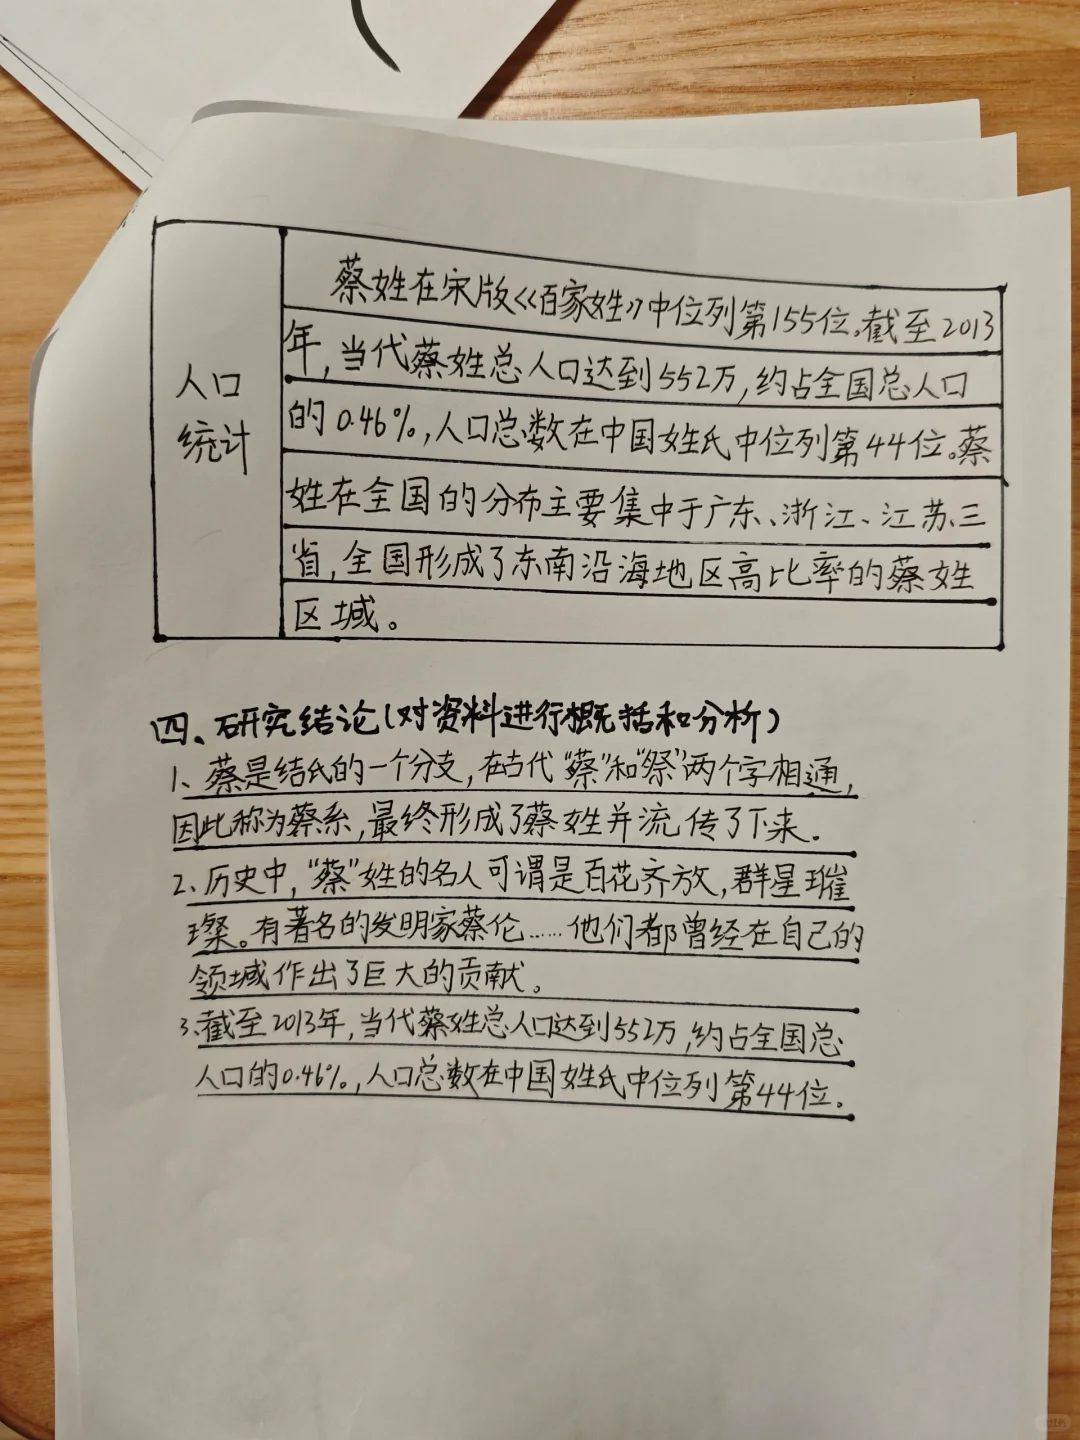 蔡姓在宋版《百家姓》中位列第155位。截至2013
年，当代蔡姓总人口达到552万，约占全国总人口
的0.46%，人口总数在中国姓氏中位列第44位。蔡
姓在全国的分布主要集中于广东、浙江、江苏三
省，全国形成了东南沿海地区高比率的蔡姓
区域。
人口
统计
四、研究结论（对资料进行概括和分析）
1、蔡是结氏的一个分支，在古代“蔡”和“祭”两个字相通，
因此称为蔡系，最终形成了蔡姓并流传了下来。
2、历史中，“蔡”姓的名人可谓是百花齐放，群星璀
璨。有著名的发明家蔡伦……他们都曾经在自己的
领域作出了巨大的贡献。
3、截至2013年，当代蔡姓总人口达到552万，约占全国总
人口的0.46%，人口总数在中国姓氏中位列第44位。